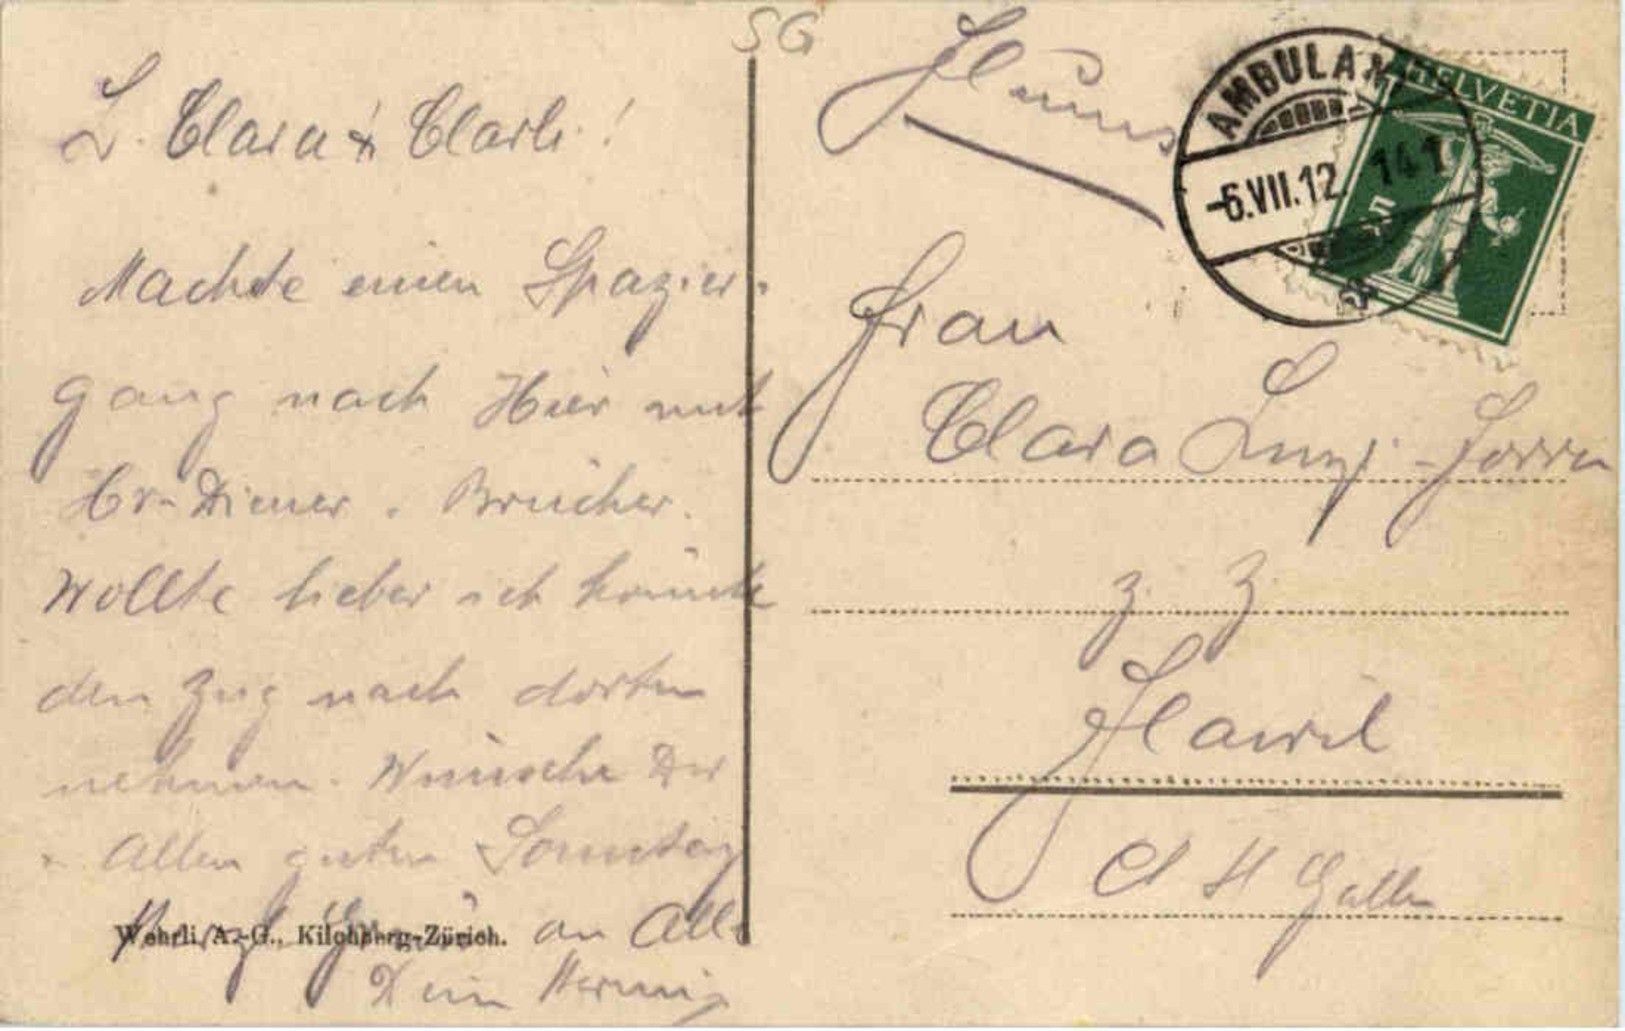 SG
L. Clara & Clärli!
Machte einen Spazier-
gang nach Hier mit
Hr. Diener. Brücher.
Wollte lieber ich könnte
den Zug nach dorten
nehmen. Wünsche Dir
+ Allen guten Sonntag
Herzl. Grüsse an Alle
Dein Hermi
Wehrli A.-G., Kilchberg-Zürich.
Flums
AMBULANT
-6.VII.12. 141
HELVETIA
5
Frau
Clara
z. Z.
Flawil
Ct St Gallen